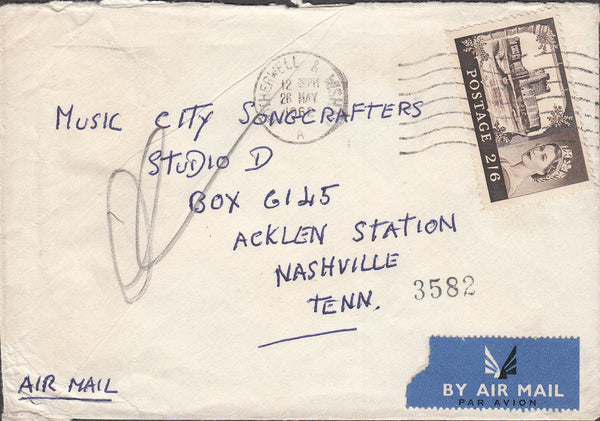 & WISH
12 
26 MAY
A
POSTAGE 2/6
MUSIC CITY SONGCRAFTERS
STUDIO D
BOX 6145
ACKLEN STATION
NASHVILLE
TENN.
3582
AIR MAIL
BY AIR MAIL
PAR AVION